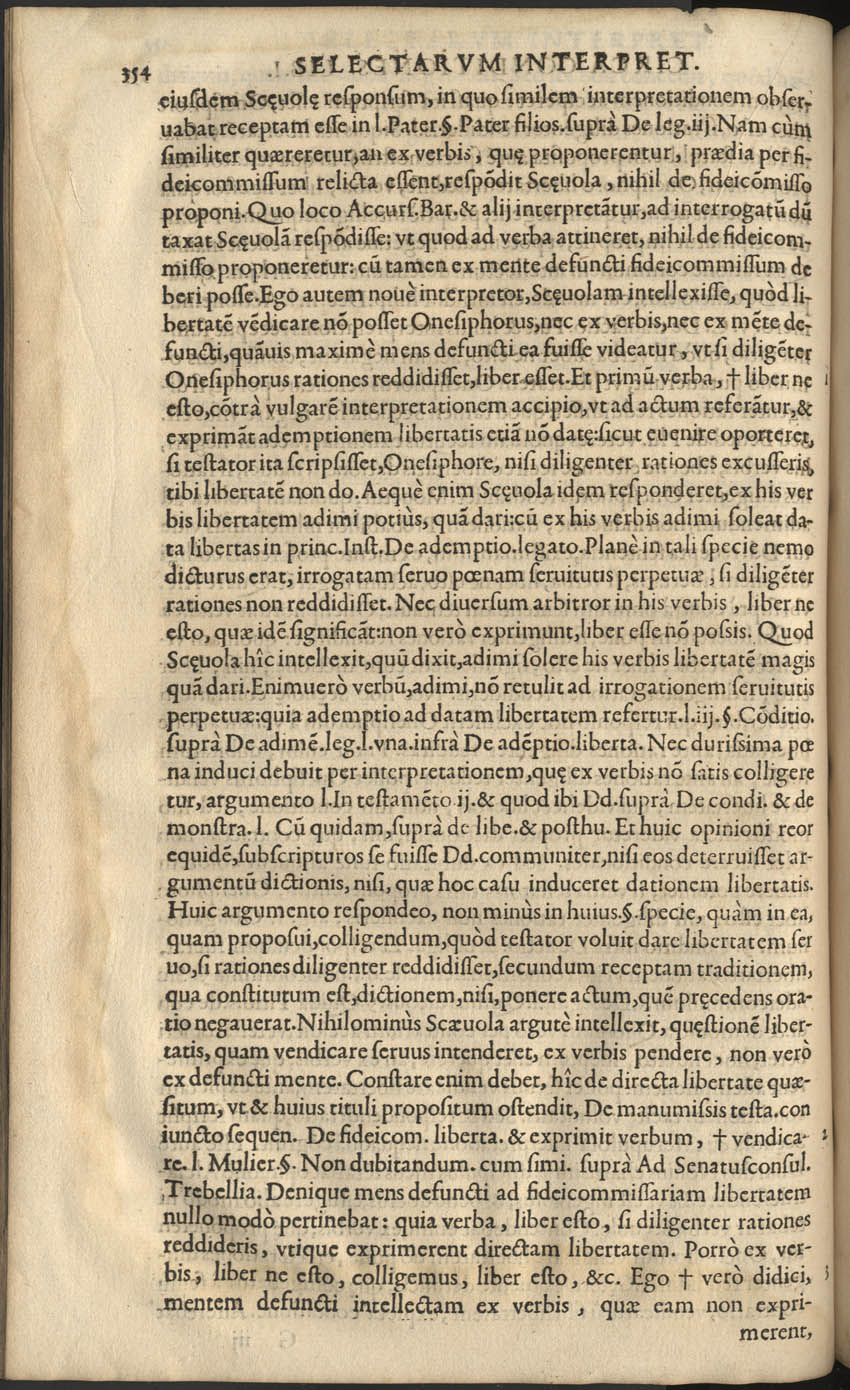 354 SELECTARVM INTERPRET.
eiuſdem Scęuolę reſponſum, in quo ſimilem interpretationem obſer-
uabat receptam eſſe in l.Pater.§.Pater filios.ſuprà De leg.iij.Nam cùm
ſimiliter quæreretur,an ex verbis, quę proponerentur, prædia per fi-
deicommiſſum relicta eſſent,reſpōdit Scęuola, nihil de fideicōmiſſo
proponi.Quo loco Accurſ.Bar.& alij interpretātur,ad interrogatū dū
taxat Scęuolā reſpōdiſſe: vt quod ad verba attineret, nihil de fideicom-
miſſo proponeretur: cū tamen ex mente defuncti fideicommiſſum de
beri poſſe.Ego autem nouè interpretor,Scęuolam intellexiſſe, quòd li-
bertatē vēdicare nō poſſet Oneſiphorus,nec ex verbis,nec ex mēte de-
functi,quāuis maximè mens defuncti ea fuiſſe videatur, vt ſi diligēter
Oneſiphorus rationes reddidiſſet,liber eſſet.Et primū verba, † liber ne 1
eſto,cōtrà vulgarē interpretationem accipio,vt ad actum referātur,&
exprimāt ademptionem libertatis etiā nō datę:ſicut euenire oporteret,
ſi teſtator ita ſcripſiſſet,Oneſiphore, niſi diligenter rationes excuſſeris,
tibi libertatē non do.Aequè enim Scęuola idem reſponderet,ex his ver
bis libertatem adimi potiùs, quā dari:cū ex his verbis adimi ſoleat da-
ta libertas in princ.Inſt.De ademptio.legato.Planè in tali ſpecie nemo
dicturus erat, irrogatam ſeruo pœnam ſeruitutis perpetuæ, ſi diligēter
rationes non reddidiſſet. Nec diuerſum arbitror in his verbis, liber ne
eſto, quæ idē ſignificāt:non verò exprimunt,liber eſſe nō poſsis. Quod
Scęuola hîc intellexit,quū dixit,adimi ſolere his verbis libertatē magis
quā dari.Enimuerò verbū,adimi,nō retulit ad irrogationem ſeruitutis
perpetuæ:quia ademptio ad datam libertatem refertur.l.iij.§.Cōditio.
ſuprà De adimē.leg.l.vna.infrà De adēptio.liberta. Nec duriſsima pœ
na induci debuit per interpretationem,quę ex verbis nō ſatis colligere
tur, argumento l.In teſtamēto ij.& quod ibi Dd.ſuprà De condi. & de
monſtra. l. Cū quidam,ſuprà de libe.& poſthu. Et huic opinioni reor
equidē,ſubſcripturos ſe fuiſſe Dd.communiter,niſi eos deterruiſſet ar-
gumentū dictionis, niſi, quæ hoc caſu induceret dationem libertatis.
Huic argumento reſpondeo, non minùs in huius.§.ſpecie, quàm in ea,
quam propoſui,colligendum,quòd teſtator voluit dare libertatem ſer
uo,ſi rationes diligenter reddidiſſet,ſecundum receptam traditionem,
qua conſtitutum eſt,dictionem,niſi,ponere actum,quē pręcedens ora-
tio negauerat.Nihilominùs Scæuola argutè intellexit, quęſtionē liber-
tatis, quam vendicare ſeruus intenderet, ex verbis pendere, non verò
ex defuncti mente. Conſtare enim debet, hîc de directa libertate quæ-
ſitum, vt & huius tituli propoſitum oſtendit, De manumiſsis teſta.con
iuncto ſequen. De fideicom. liberta. & exprimit verbum, † vendica- 2
re. l. Mulier.§. Non dubitandum. cum ſimi. ſuprà Ad Senatuſconſul.
Trebellia. Denique mens defuncti ad fideicommiſſariam libertatem
nullo modò pertinebat: quia verba, liber eſto, ſi diligenter rationes
reddideris, vtique exprimerent directam libertatem. Porrò ex ver-
bis, liber ne eſto, colligemus, liber eſto, &c. Ego † verò didici, 3
mentem defuncti intellectam ex verbis, quæ eam non expri-
merent,